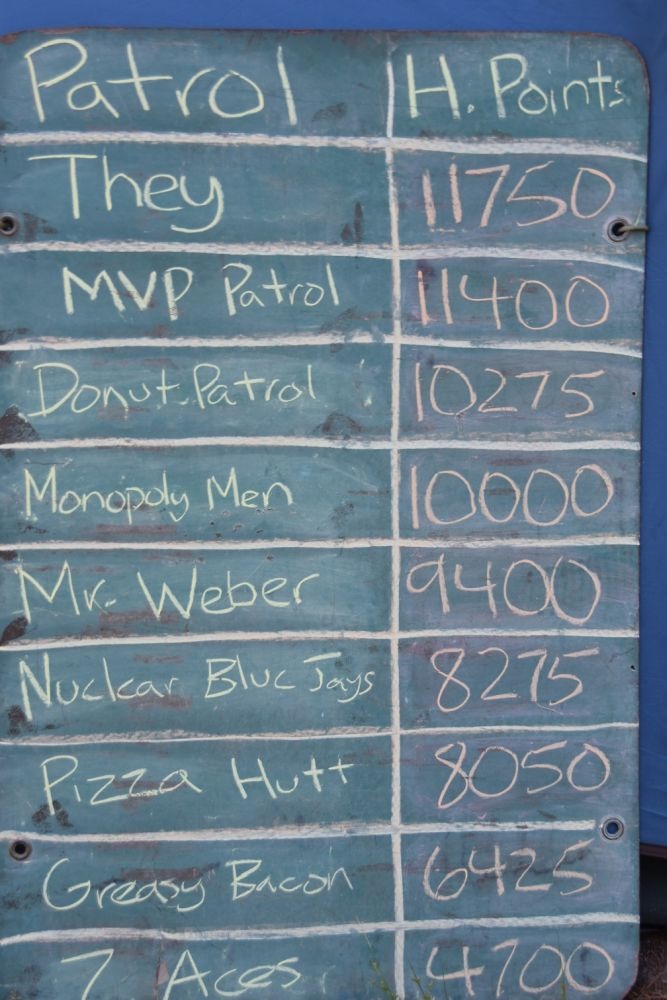 Patrol H. Points
They 11750
MVP Patrol 11400
Donut Patrol 10275
Monopoly Men 10000
Mr. Weber 9400
Nuclear Blue Jays 8275
Pizza Hutt 8050
Greasy Bacon 6425
7 Aces 4700